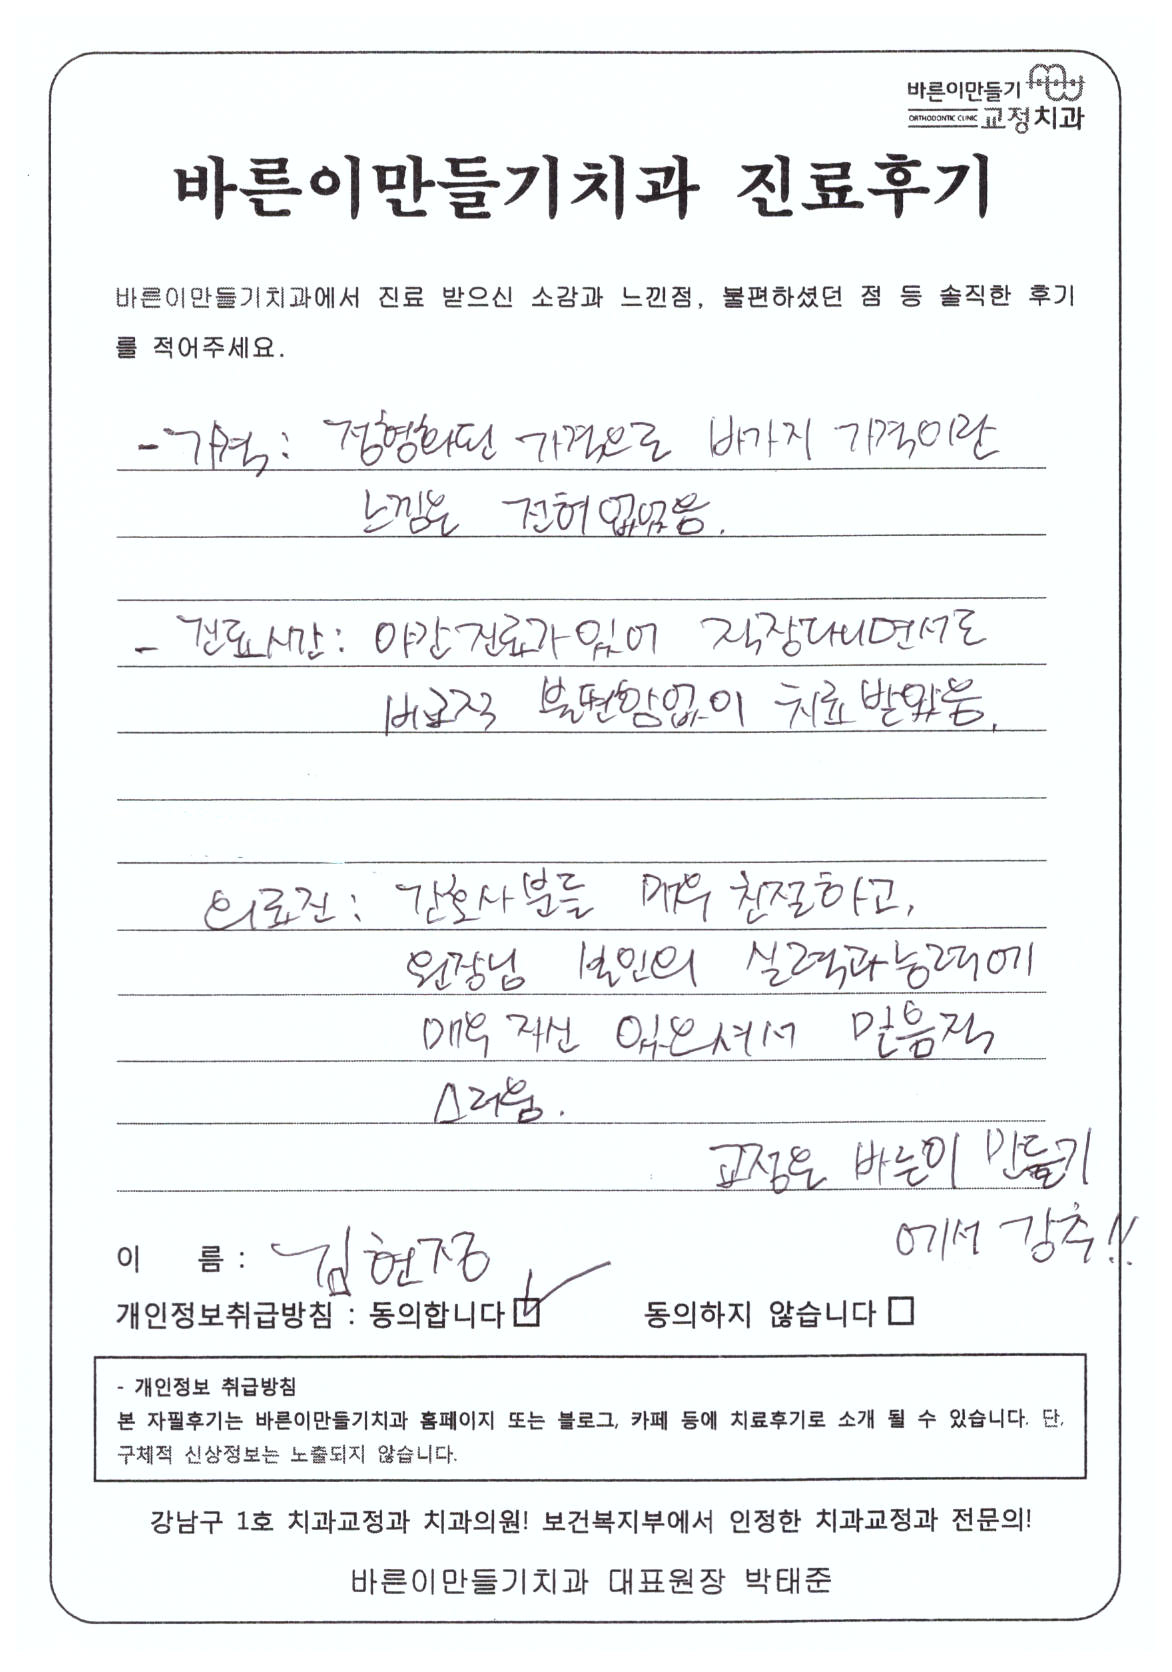 바른이만들기
ORTHODONTIC CLINIC 교정치과
바른이만들기치과 진료후기
바른이만들기치과에서 진료 받으신 소감과 느낀점, 불편하셨던 점 등 솔직한 후기
를 적어주세요.
- 가격 : 정형화된 가격으로 바가지 가격이란
느낌은 전혀 없었음.
- 진료시간 : 야간진료가 있어 직장다니면서도
비교적 불편함없이 치료 받았음.
의료진 : 간호사분들 매우 친절하고,
원장님 본인의 실력과 능력에
매우 자신 있으셔서 믿음직
스러움.
교정은 바른이 만들기
에서 강추!!
이 름 : 김현정
개인정보취급방침 : 동의합니다 동의하지 않습니다
- 개인정보 취급방침
본 자필후기는 바른이만들기치과 홈페이지 또는 블로그, 카페 등에 치료후기로 소개 될 수 있습니다. 단,
구체적 신상정보는 노출되지 않습니다.
강남구 1호 치과교정과 치과의원! 보건복지부에서 인정한 치과교정과 전문의!
바른이만들기치과 대표원장 박태준